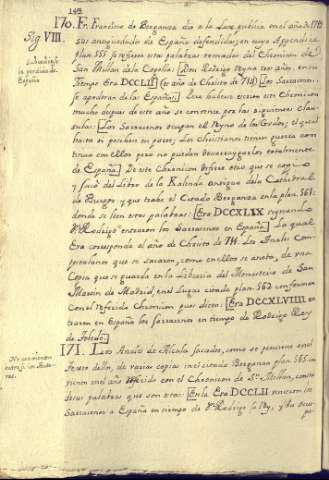 144
170. Fr. Francisco de Berganza dio a la Luz publica en el año de 1719
Sig VIII.
sus antiguedades de España defendidas, en cuyo Appendice
plan. 555 se refiere estas palabras tomadas del Chronicon de
San Millan de la Cogolla: Don Rodrigo reyna tres años, en su
tiempo Era DCCLII (es año de Christo de 714) Los Sarracenos
se apoderan de las Españas.
mucho despues de este año se continua por las siguientes clau-
sulas: Los Sarracenos ocupan el Reyno de los Godos; el qual
hasta oi poseben en parte; Los Christianos tienen guerra con-
tinua con ellos pero no puedan totalmente
de España. De este Chronicon difiere otro que se cogio
y sacò del Libro de la Kalenda antigua de la Cathedral
de Burgos y que trahe el Citado Berganza en la plan. 561.
donde se leen estas palabras: Era DCCXLIX reynando
Dn. Rodrigo entraron los Sarracenos en España. La qual
Era corresponde al año de Christo de 711. Los Anales Com-
postelanos que se sacaron, como en ellos se anota, de una
Copia que se guarda en la Libreria del Monasterio de San
Martin de Madrid, en el Lugar citado plan. 562 conforman
Con el referido Chronicon pues dicen: Era DCCXLVIIII en-
traron en España los Sarracenos en tiempo de Rodrigo Rey
de Toledo.
171. Los Anales de Alcala sacados, como se previene en el
de varias copias inclusos de Berganza plan. 565 co-
vienen en el año referido con el Chronicon de Sn. Millan, como
de sus palabras que son estas: En la Era DCCLII vinieron los
Sarracenos a España en tiempo de Dn. Rodrigo la Rey, y la ocu-